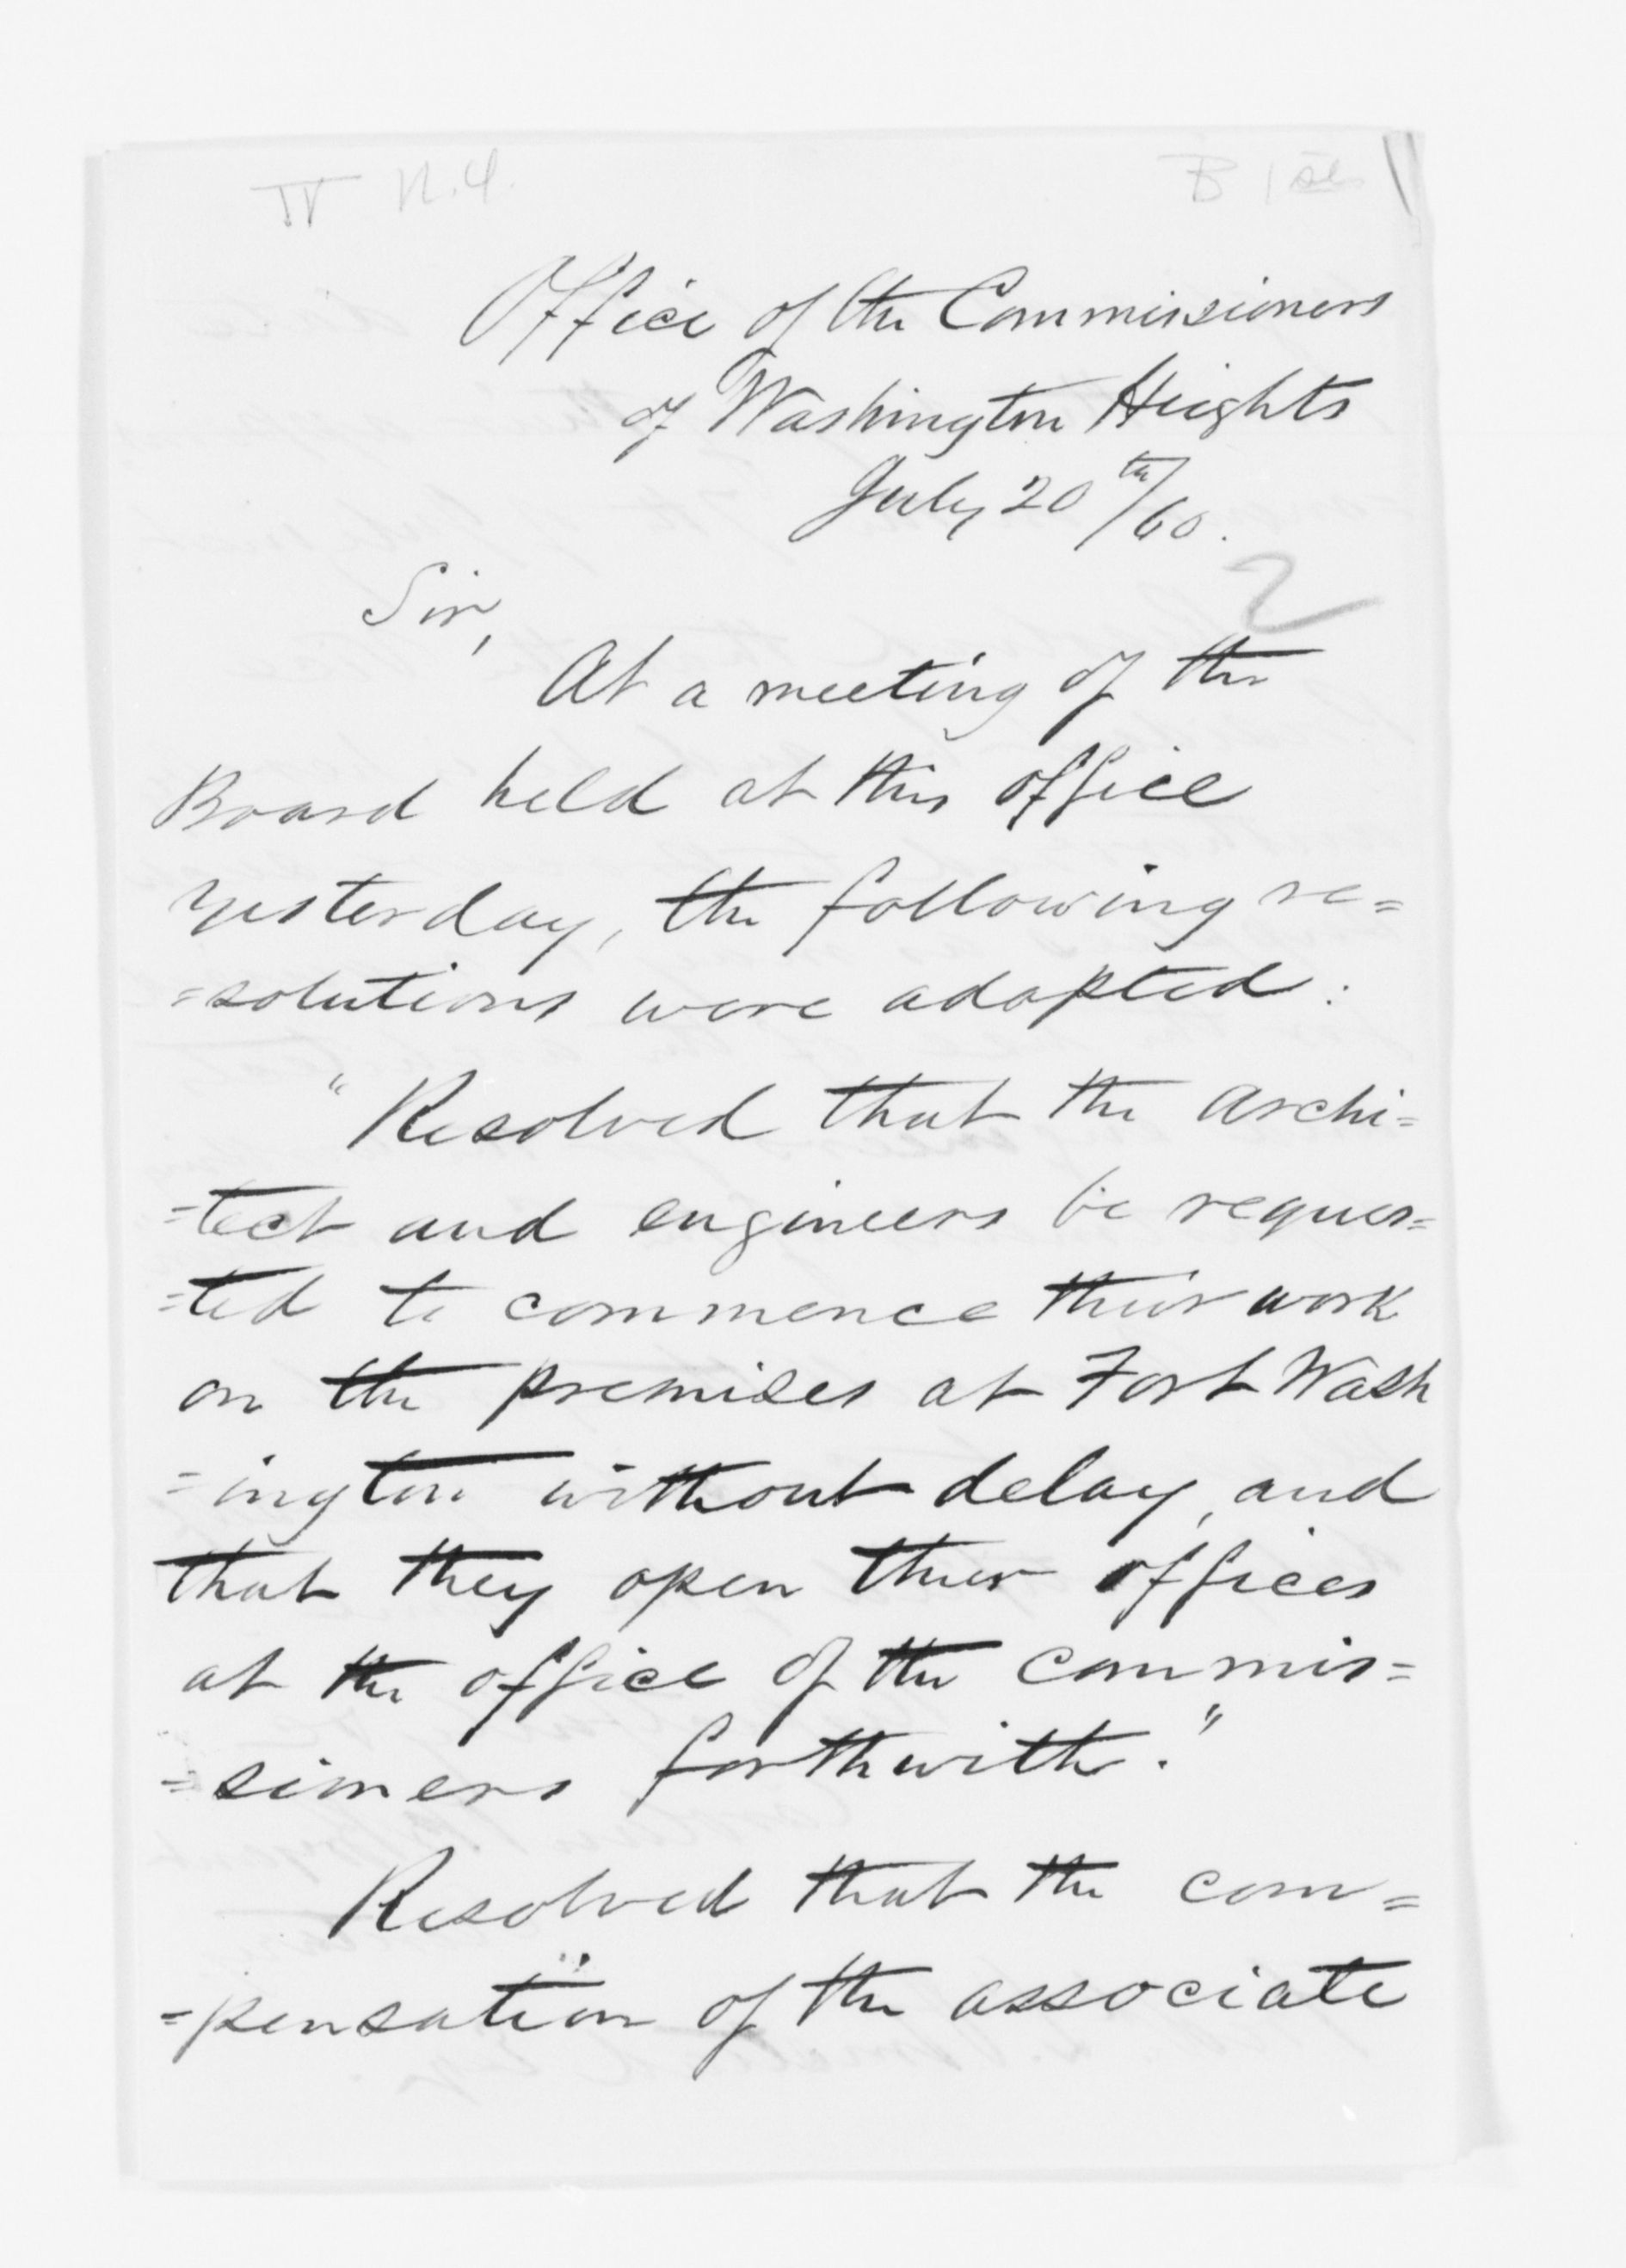 IV N.Y.
B 1
Office of the Commissioners
of Washington Heights
July 20th/60.
2
Sir,
At a meeting of the
Board held at this office
yesterday, the following re=
=solutions were adopted:
"Resolved that the archi=
=tect and engineers be reques=
=ted to commence their work
on the premises at Fort Wash
=ington without delay, and
that they open their offices
at the office of the commis=
=sioners forthwith."
Resolved that the com=
=pensation of the associate